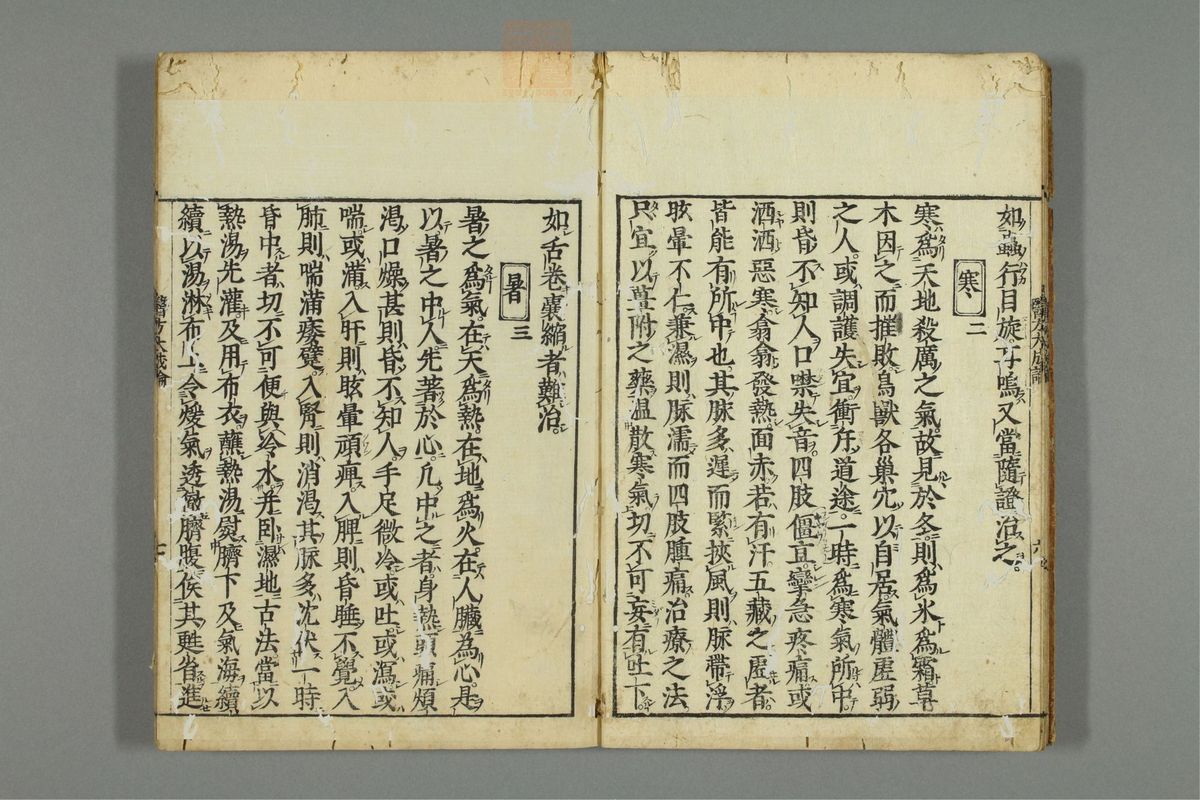 如蟲行目旋耳鳴又當隨證治之
寒 二
寒爲天地殺厲之氣故見於冬則爲氷爲霜草
木因之而摧敗鳥獸各巢穴以自居氣體虛弱
之人或調護失宜衝斥道途一時爲寒氣所中
則昏不知人口噤失音四肢僵直攣急疼痛或
洒洒惡寒翕翕發熱面赤若有汗五藏之虛者
皆能有所中也其脉多遲而緊挾風則脉帶浮
眩暈不仁兼濕則脉濡而四肢腫痛治療之法
只宜以薑附之藥温散寒氣切不可妄有吐下
如舌卷囊縮者難治
暑 三
暑之爲氣在天爲熱在地爲火在人臟爲心是
以暑之中人先著於心凢中之者身熱頭痛煩
渇口燥甚則昏不知人手足微冷或吐或瀉或
喘或滿入肝則眩暈頑痺入脾則昏睡不覺入
肺則喘滿痿躄入腎則消渇其脉多沈伏一時
昏中者切不可便與冷水并臥濕地古法當以
熱湯先灌及用布衣蘸熱湯熨臍下及氣海續
續以湯淋布上令煖氣透徹臍腹俟其甦省進